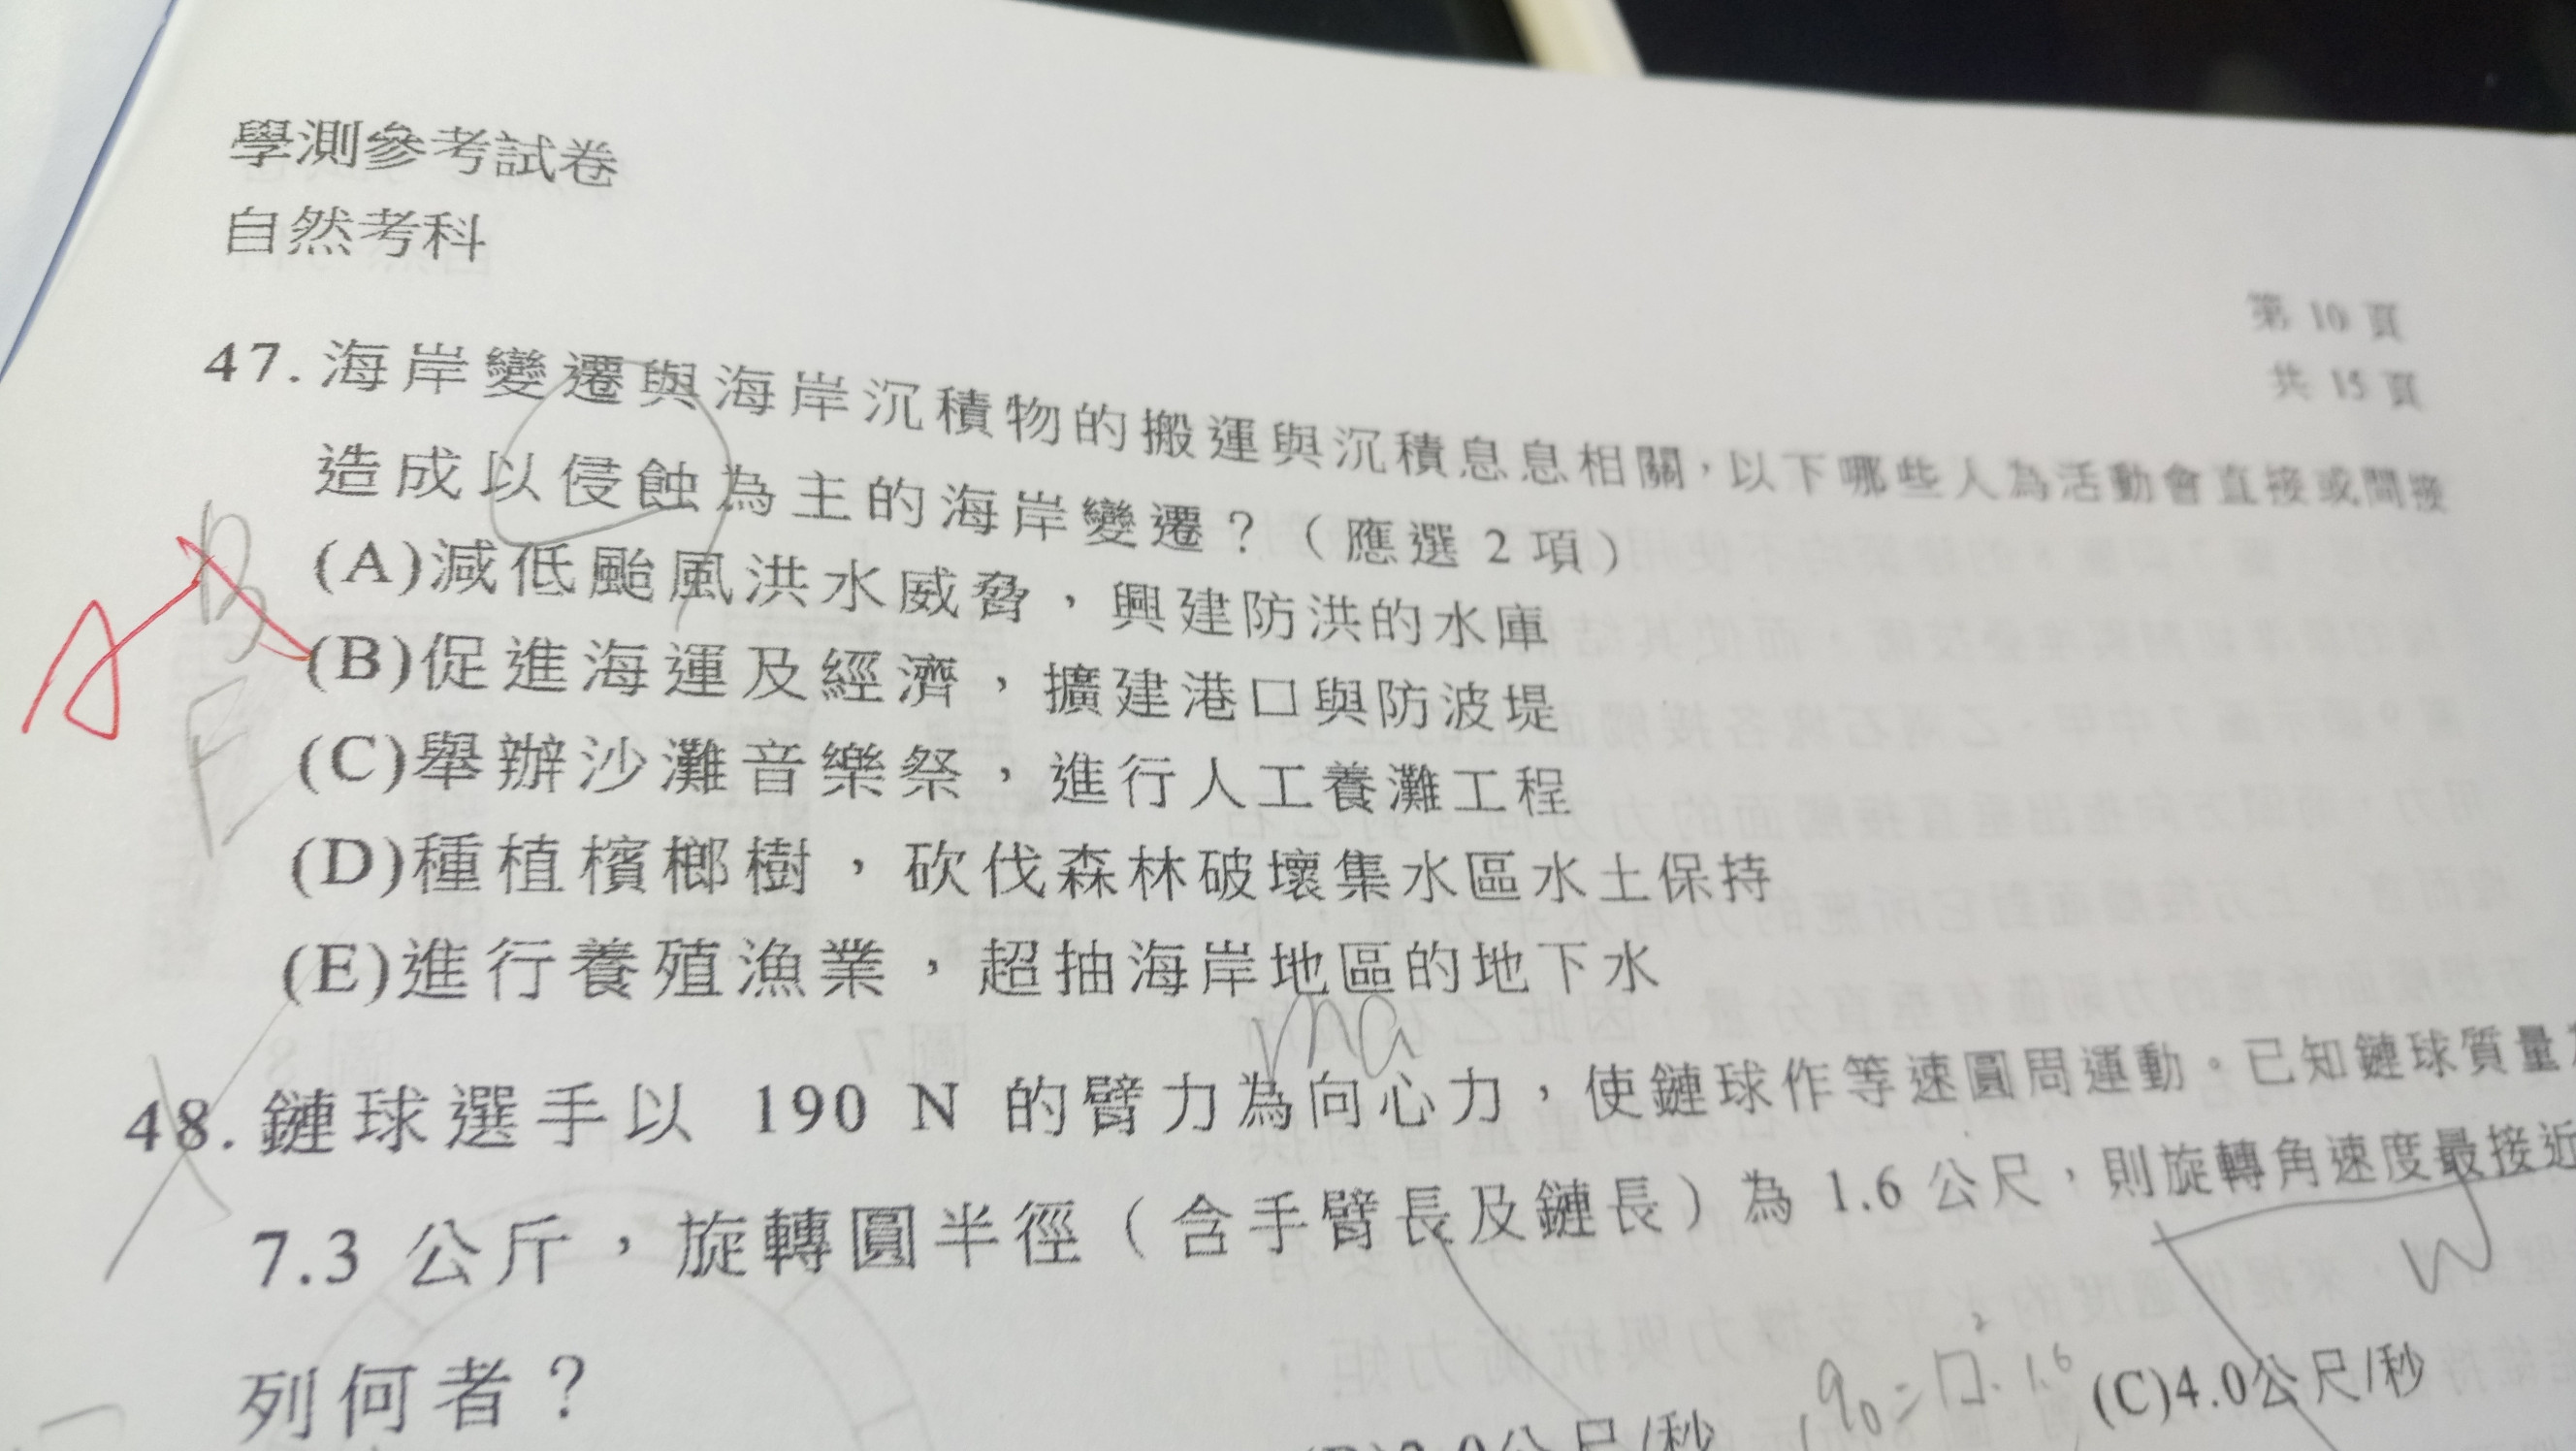 學測參考試卷
自然考科
第 10 頁
共 15 頁
47. 海岸變遷與海岸沉積物的搬運與沉積息息相關，以下哪些人為活動會直接或間接
造成以侵蝕為主的海岸變遷？（應選 2 項）
(A)減低颱風洪水威脅，興建防洪的水庫
(B)促進海運及經濟，擴建港口與防波堤
(C)舉辦沙灘音樂祭，進行人工養灘工程
(D)種植檳榔樹，砍伐森林破壞集水區水土保持
(E)進行養殖漁業，超抽海岸地區的地下水
A
B
E
ma
48. 鏈球選手以 190 N 的臂力為向心力，使鏈球作等速圓周運動。已知鏈球質量
7.3 公斤，旋轉圓半徑（含手臂長及鏈長）為 1.6 公尺，則旋轉角速度最接近
w
列何者？
公尺/秒
(C)4.0公尺/秒